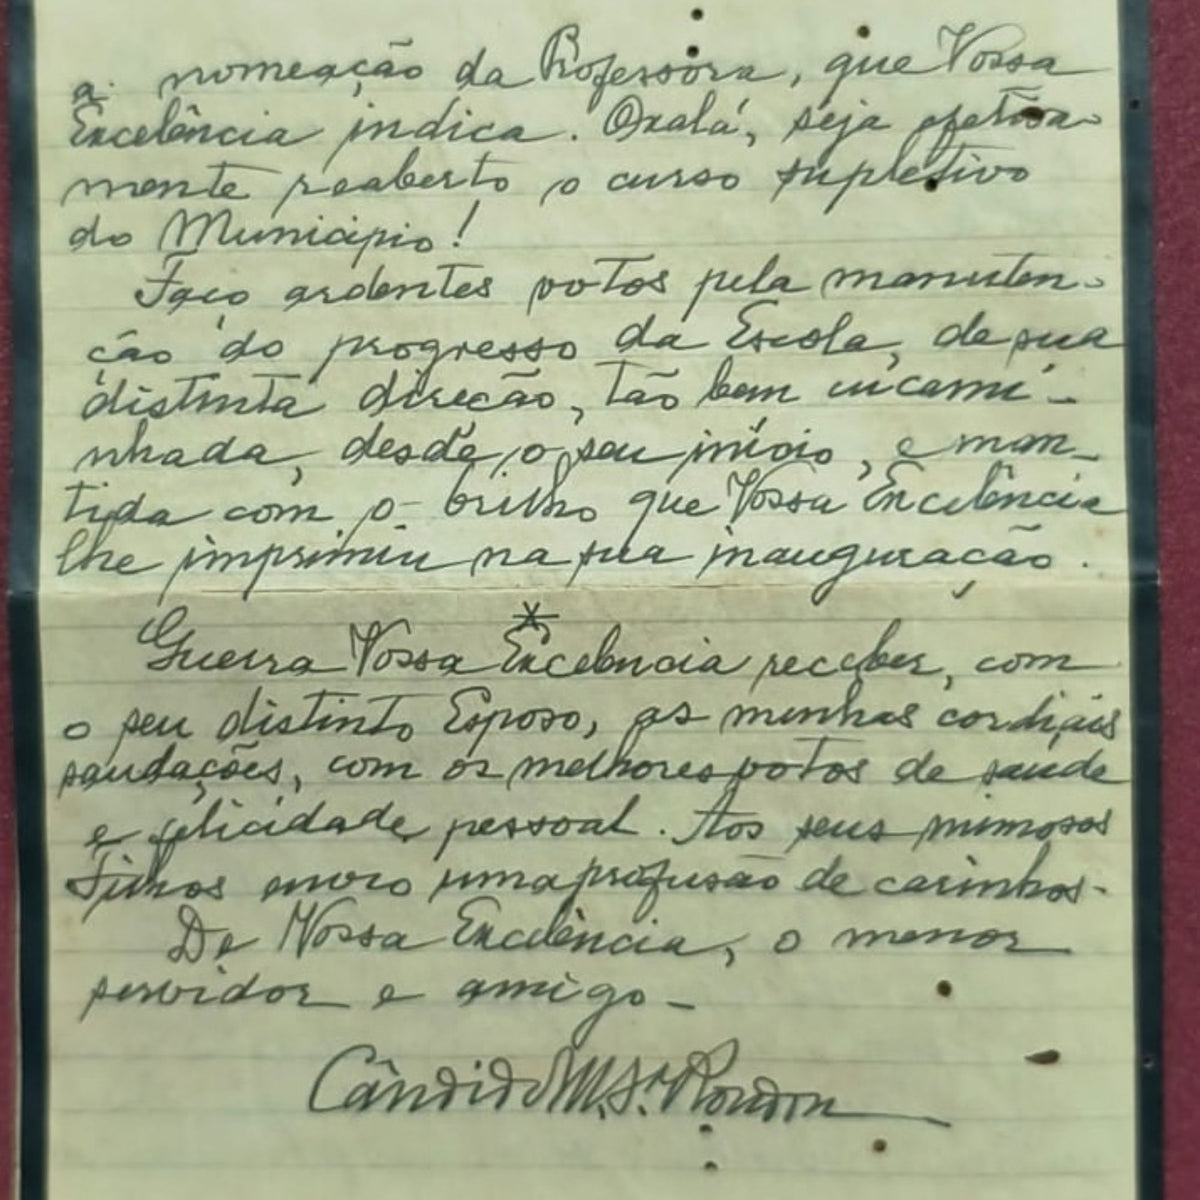 a nomeação da Professora, que Vossa
Excelência indica. Oxalá, seja efetiva-
mente reaberto o curso supletivo
do Município!
Faço ardentes votos pela manuten-
ção do progresso da Escola, de sua
distinta direção, tão bem encami-
nhada, desde o seu início, e man-
tida com o brilho que Vossa Excelência
lhe imprimiu na sua inauguração.
Queira Vossa Excelencia receber, com
o seu distinto Esposo, as minhas cordiais
saudações, com os melhores votos de saude
e felicidade pessoal. Aos seus mimosos
Filhos envio uma profusão de carinhos.
De Vossa Excelência, o menor
servidor e amigo -
Cândido M. S. Rondon